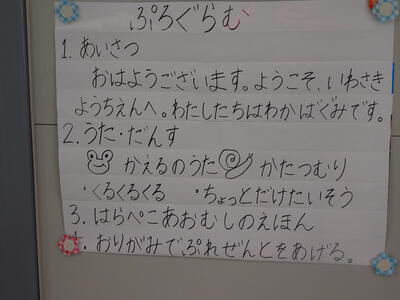 ぷろぐらむ
1. あいさつ
おはようございます。ようこそ、いわさき
ようちえんへ。わたしたちはわかばぐみです。
2. うた・だんす
かえるのうた かたつむり
・くるくるくる ・ちょっとだけたいそう
3. はらぺこあおむしのえほん
4. おりがみでぷれぜんとをあげる。